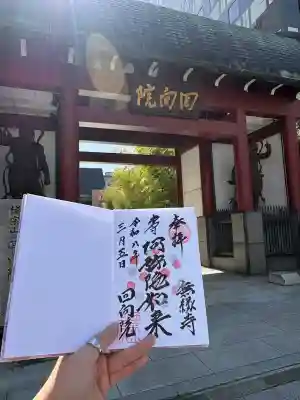 回向院
奉拝
無縁寺
本尊
阿弥陀如来
令和八年
三月五日
回向院